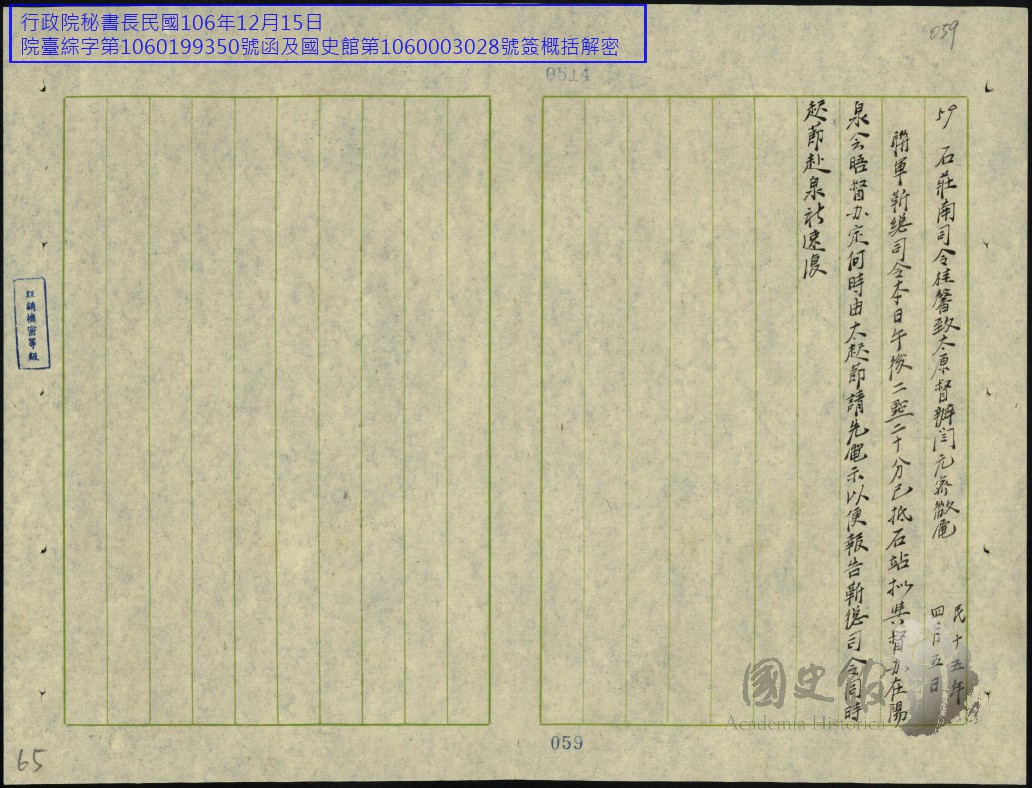 行政院秘書長民國106年12月15日
院臺綜字第1060199350號函及國史館第1060003028號簽概括解密
059
0514
59 石莊南司令桂馨致太原督辦閻元齋微電
民十五年
四月五日
聯軍靳總司令本日午後二點二十分已抵石站擬與督办在陽
泉会晤督办定何時由太起節請先電示以便報告靳總司令同時
起節赴泉祈速復
註銷機密等級
國史館
Academia Historica
059
65